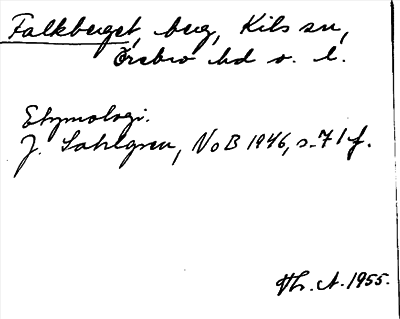 Falkberget, berg, Kils sn,
Örebro hd o. l.
Etymologi.
J. Sahlgren, NoB 1946, s. 71 f.
Th. A. 1955.